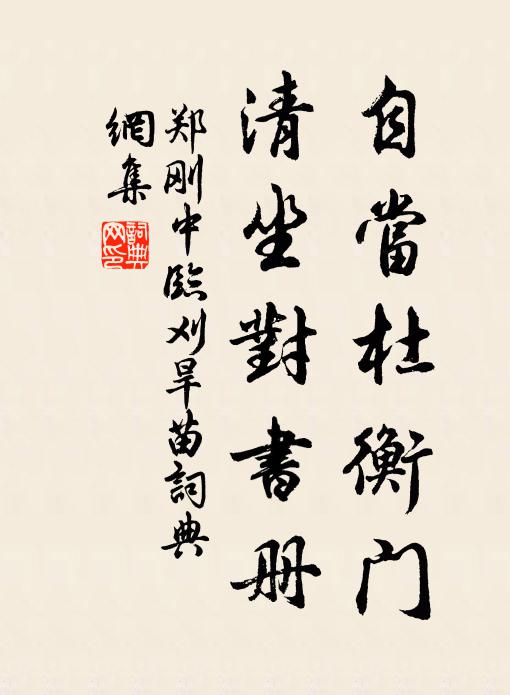 自當杜衡门
清坐對書册
郑刚中臨刈旱苗詞典
網集
詞典网印